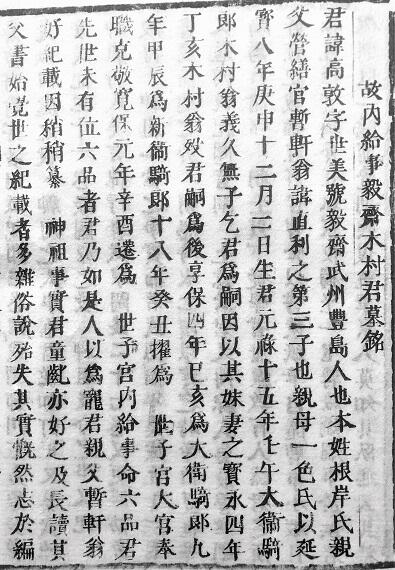 故內給事毅齋木村君墓銘
君諱高敦字世美號毅齋武州豐島人也本姓根岸氏親
父營繕官暫軒翁諱直利之第三子也親母一色氏以延
寶八年庚申十二月二日生君元祿十五年壬午大衞騎
郎木村翁義久無子乞君爲嗣因以其妹妻之寳永四年
丁亥木村翁歿君嗣爲後享保四年己亥爲大衞騎郎九
年甲辰爲新衞騎郎十八年癸丑擢爲 世子宮大官奉
職克敬寬保元年辛酉遷爲 世子宮內給事命六品君
先世未有位六品者君乃如是人以爲寵君親父暫軒翁
好紀載因稍稍纂 神祖事實君童齔亦好之及長讀其
父書始覺世之紀載者多雜俗說殆失其實慨然志於編